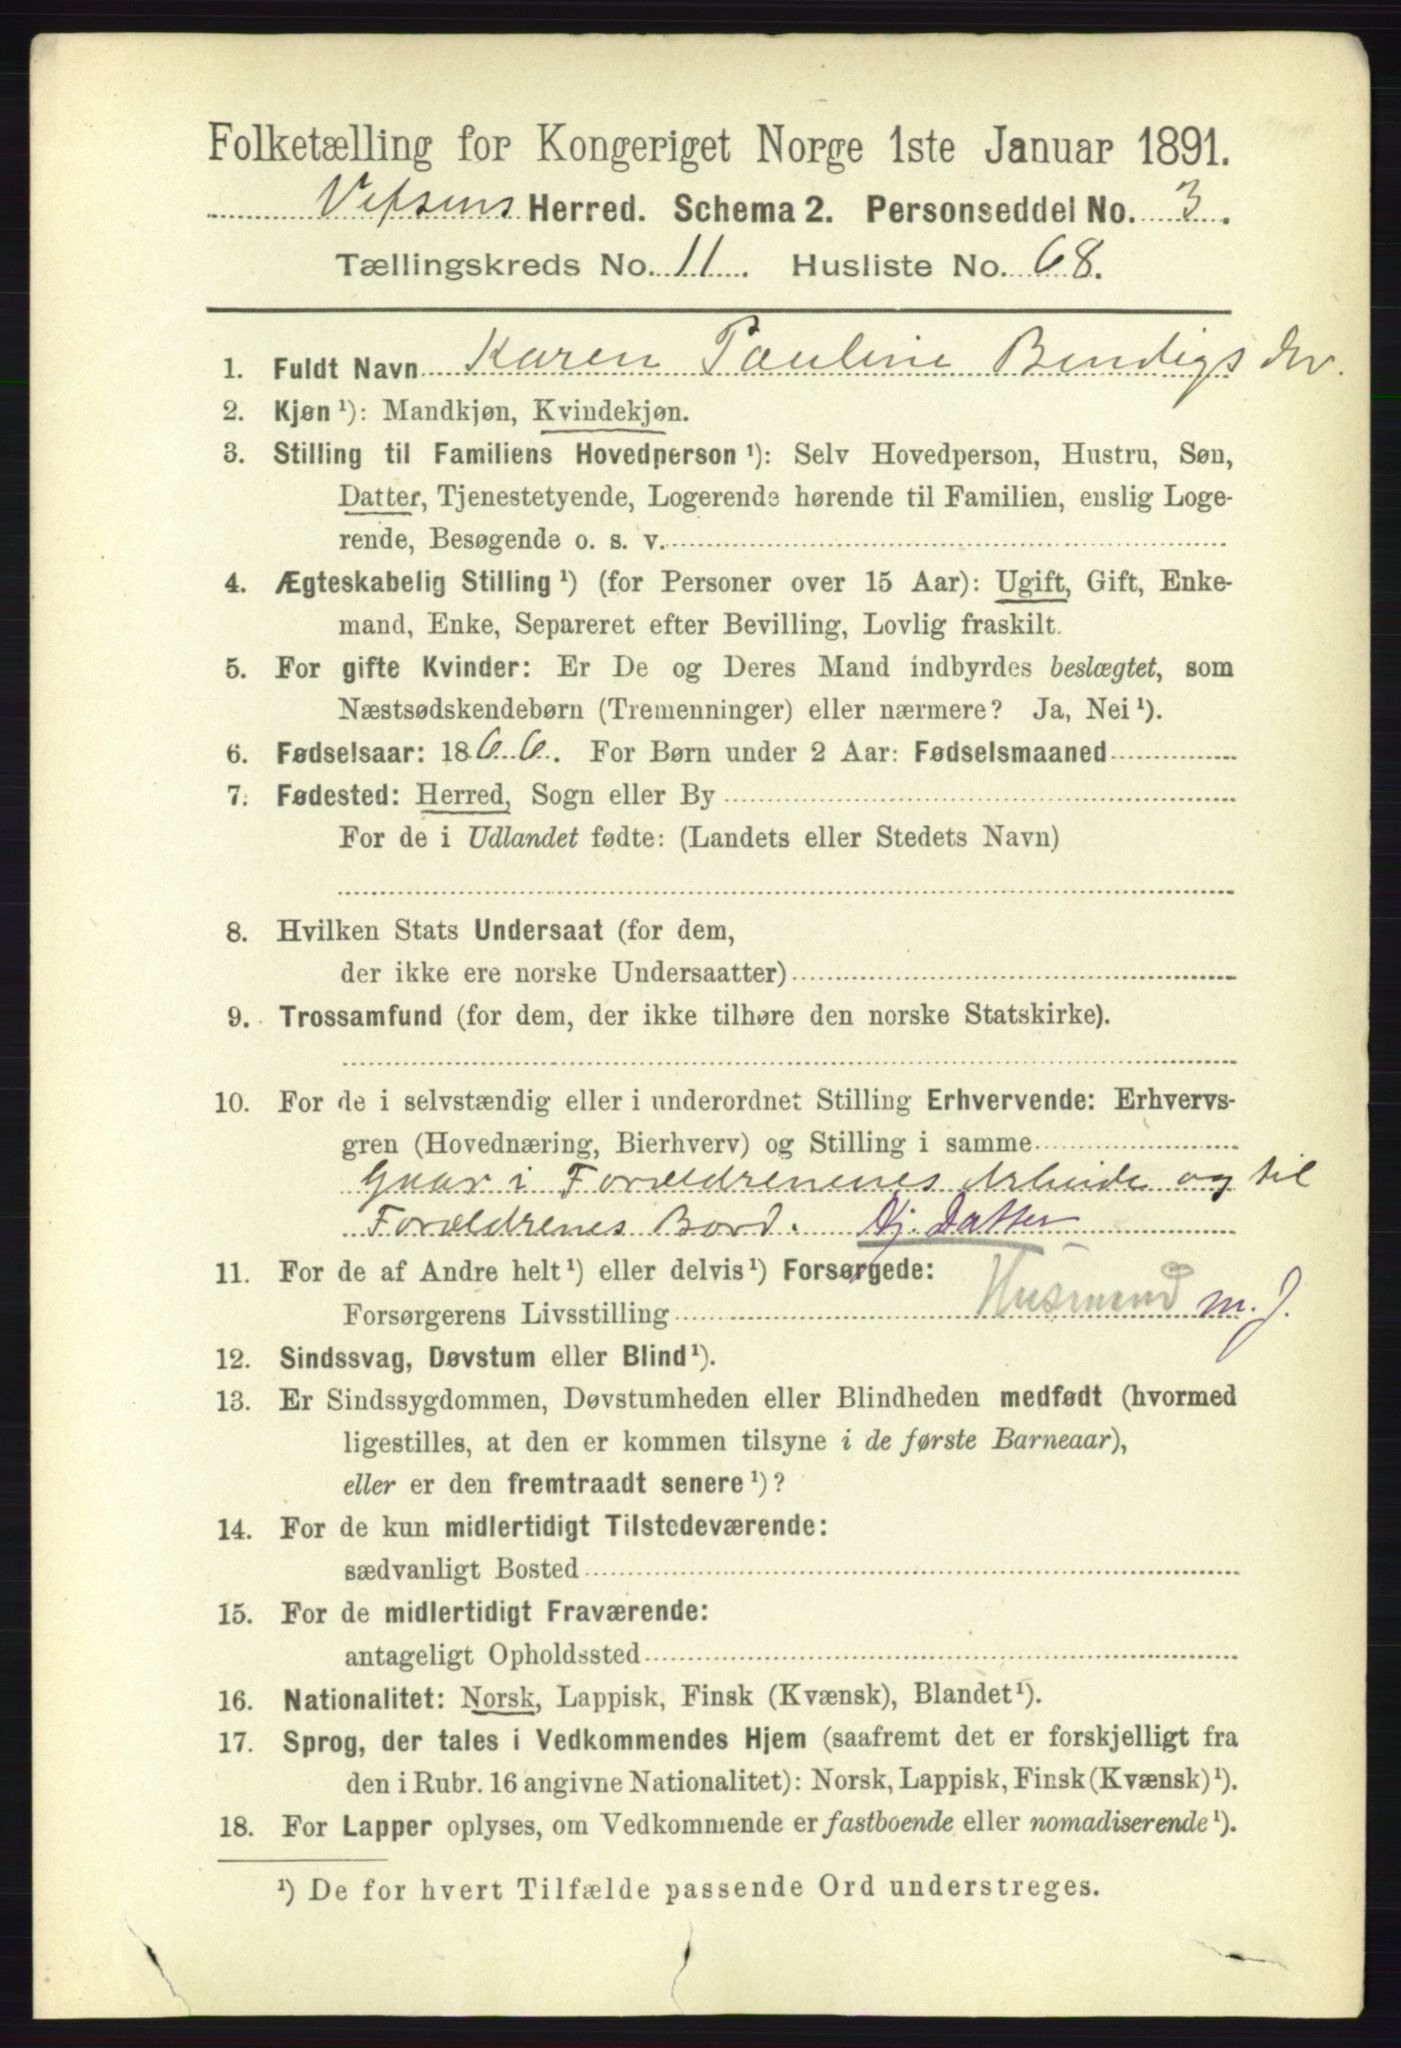 Folketælling for Kongeriget Norge 1ste Januar 1891.
Vefsens Herred. Schema 2. Personseddel No. 3.
Tællingskreds No. 11. Husliste No. 68.
1. Fuldt Navn Karen Pauline Bendigsdtr.
2. Kjøn ¹): Mandkjøn, Kvindekjøn.
3. Stilling til Familiens Hovedperson ¹): Selv Hovedperson, Hustru, Søn,
Datter, Tjenestetyende, Logerende hørende til Familien, enslig Loge-
rende, Besøgende o. s. v.
4. Ægteskabelig Stilling ¹) (for Personer over 15 Aar): Ugift, Gift, Enke-
mand, Enke, Separeret efter Bevilling, Lovlig fraskilt.
5. For gifte Kvinder: Er De og Deres Mand indbyrdes beslægtet, som
Næstsødskendebørn (Tremenninger) eller nærmere? Ja, Nei ¹).
6. Fødselsaar: 1866. For Børn under 2 Aar: Fødselsmaaned
7. Fødested: Herred, Sogn eller By
For de i Udlandet fødte: (Landets eller Stedets Navn)
8. Hvilken Stats Undersaat (for dem,
der ikke ere norske Undersaatter)
9. Trossamfund (for dem, der ikke tilhøre den norske Statskirke).
10. For de i selvstændig eller i underordnet Stilling Erhvervende: Erhvervs-
gren (Hovednæring, Bierhverv) og Stilling i samme
Gaar i Forældrenenes Arbeide og til
Forældrenes Bord. Hj. Datter
11. For de af Andre helt ¹) eller delvis ¹) Forsørgede:
Forsørgerens Livsstilling Husmand m. J.
12. Sindssvag, Døvstum eller Blind ¹).
13. Er Sindssygdommen, Døvstumheden eller Blindheden medfødt (hvormed
ligestilles, at den er kommen tilsyne i de første Barneaar),
eller er den fremtraadt senere ¹)?
14. For de kun midlertidigt Tilstedeværende:
sædvanligt Bosted
15. For de midlertidigt Fraværende:
antageligt Opholdssted
16. Nationalitet: Norsk, Lappisk, Finsk (Kvænsk), Blandet ¹).
17. Sprog, der tales i Vedkommendes Hjem (saafremt det er forskjelligt fra
den i Rubr. 16 angivne Nationalitet): Norsk, Lappisk, Finsk (Kvænsk) ¹).
18. For Lapper oplyses, om Vedkommende er fastboende eller nomadiserende ¹).
¹) De for hvert Tilfælde passende Ord understreges.